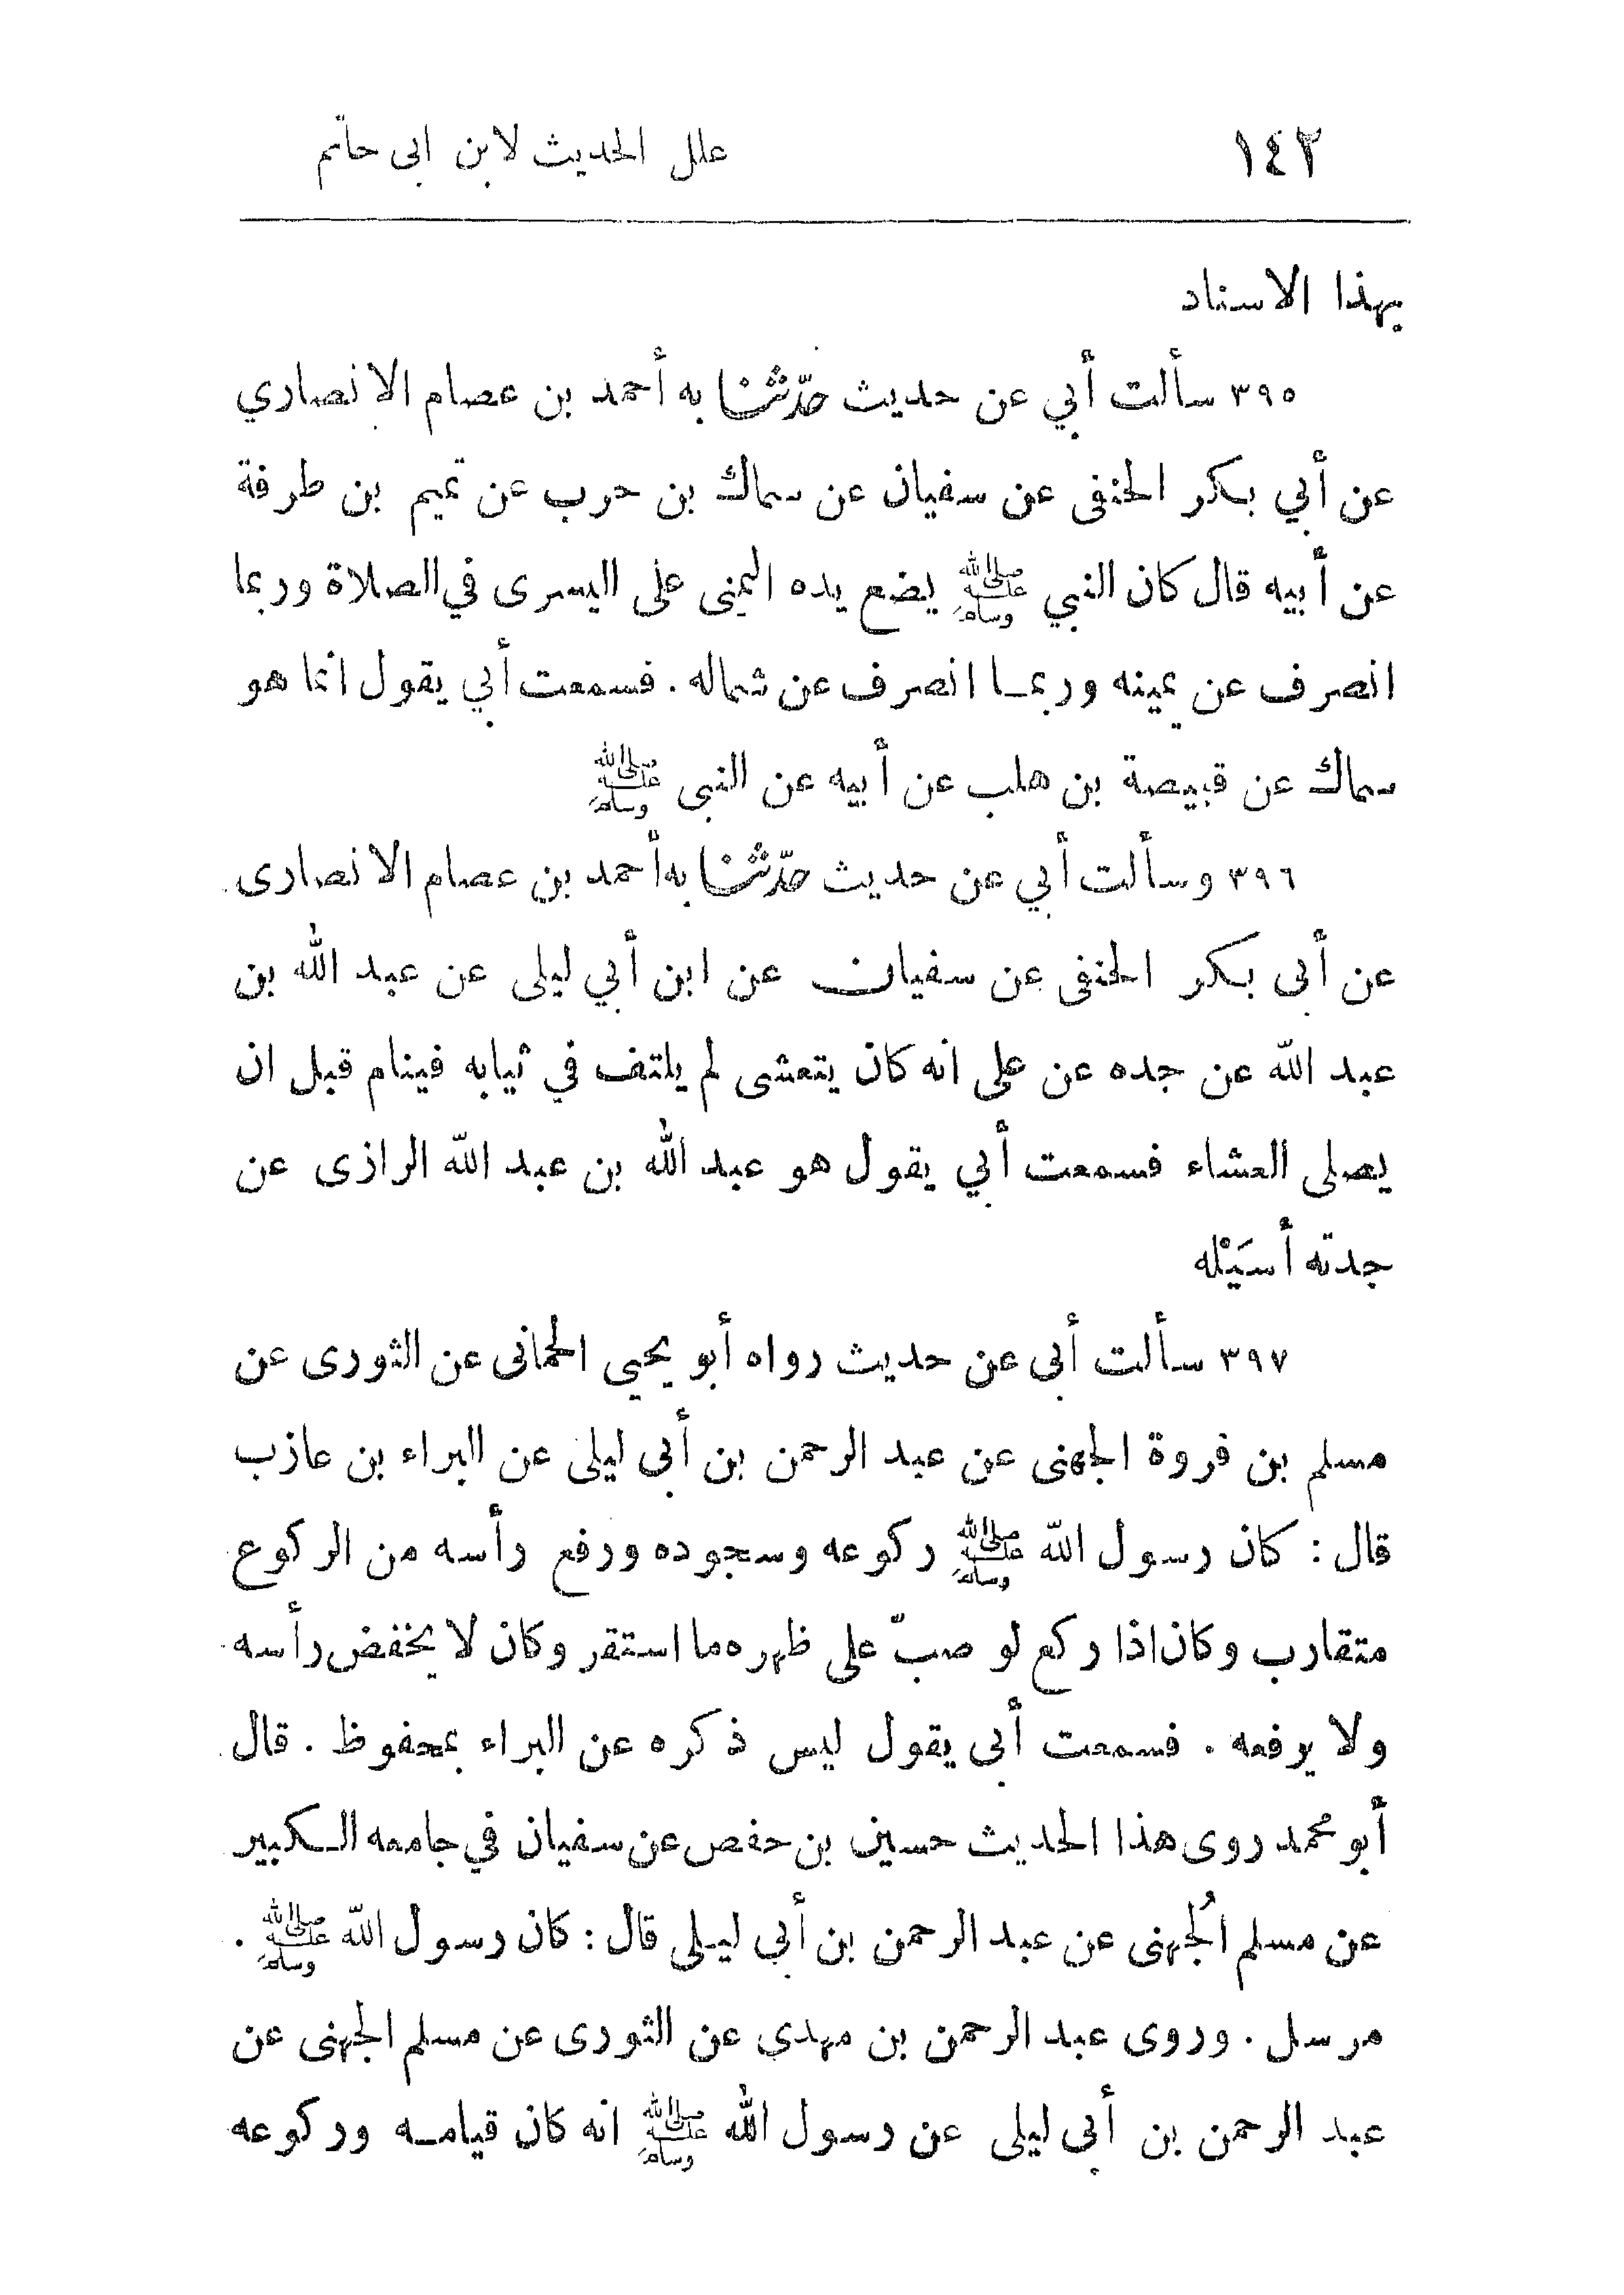 ١٤٢ علل الحديث لابن ابى حاتم
بهذا الاسناد
٣٩٥ سألت أبي عن حديث حدّثنا به أحمد بن عصام الانصاري
عن أبي بكر الحنفى عن سفيان عن سماك بن حرب عن تميم بن طرفة
عن أبيه قال كان النبي ﷺ يضع يده اليمنى على اليسرى في الصلاة وربما
انصرف عن يمينه وربما انصرف عن شماله . فسمعت أبي يقول انما هو
سماك عن قبيصة بن هلب عن أبيه عن النبى ﷺ
٣٩٦ وسألت أبي عن حديث حدّثنا به أحمد بن عصام الانصارى
عن أبى بكر الحنفى عن سفيان عن ابن أبي ليلى عن عبد الله بن
عبد الله عن جده عن على انه كان يتعشى لم يلتف في ثيابه فينام قبل ان
يصلى العشاء فسمعت أبي يقول هو عبد الله بن عبد الله الرازى عن
جدته أسَيْله
٣٩٧ سألت أبى عن حديث رواه أبو يحيى الحمانى عن الثورى عن
مسلم بن فروة الجهنى عن عبد الرحمن بن أبى ليلى عن البراء بن عازب
قال : كان رسول الله ﷺ ركوعه وسجوده ورفع رأسه من الركوع
متقارب وكان اذا ركع لو صبّ على ظهره ما استقر وكان لا يخفض رأسه
ولا يرفعه . فسمعت أبى يقول ليس ذكره عن البراء بمحفوظ . قال
أبو محمد روى هذا الحديث حسين بن حفص عن سفيان في جامعه الكبير
عن مسلم الُجهنى عن عبد الرحمن بن أبي ليلى قال : كان رسول الله ﷺ .
مرسل . وروى عبد الرحمن بن مهدي عن الثورى عن مسلم الجهنى عن
عبد الرحمن بن أبى ليلى عن رسول الله ﷺ انه كان قيامه وركوعه